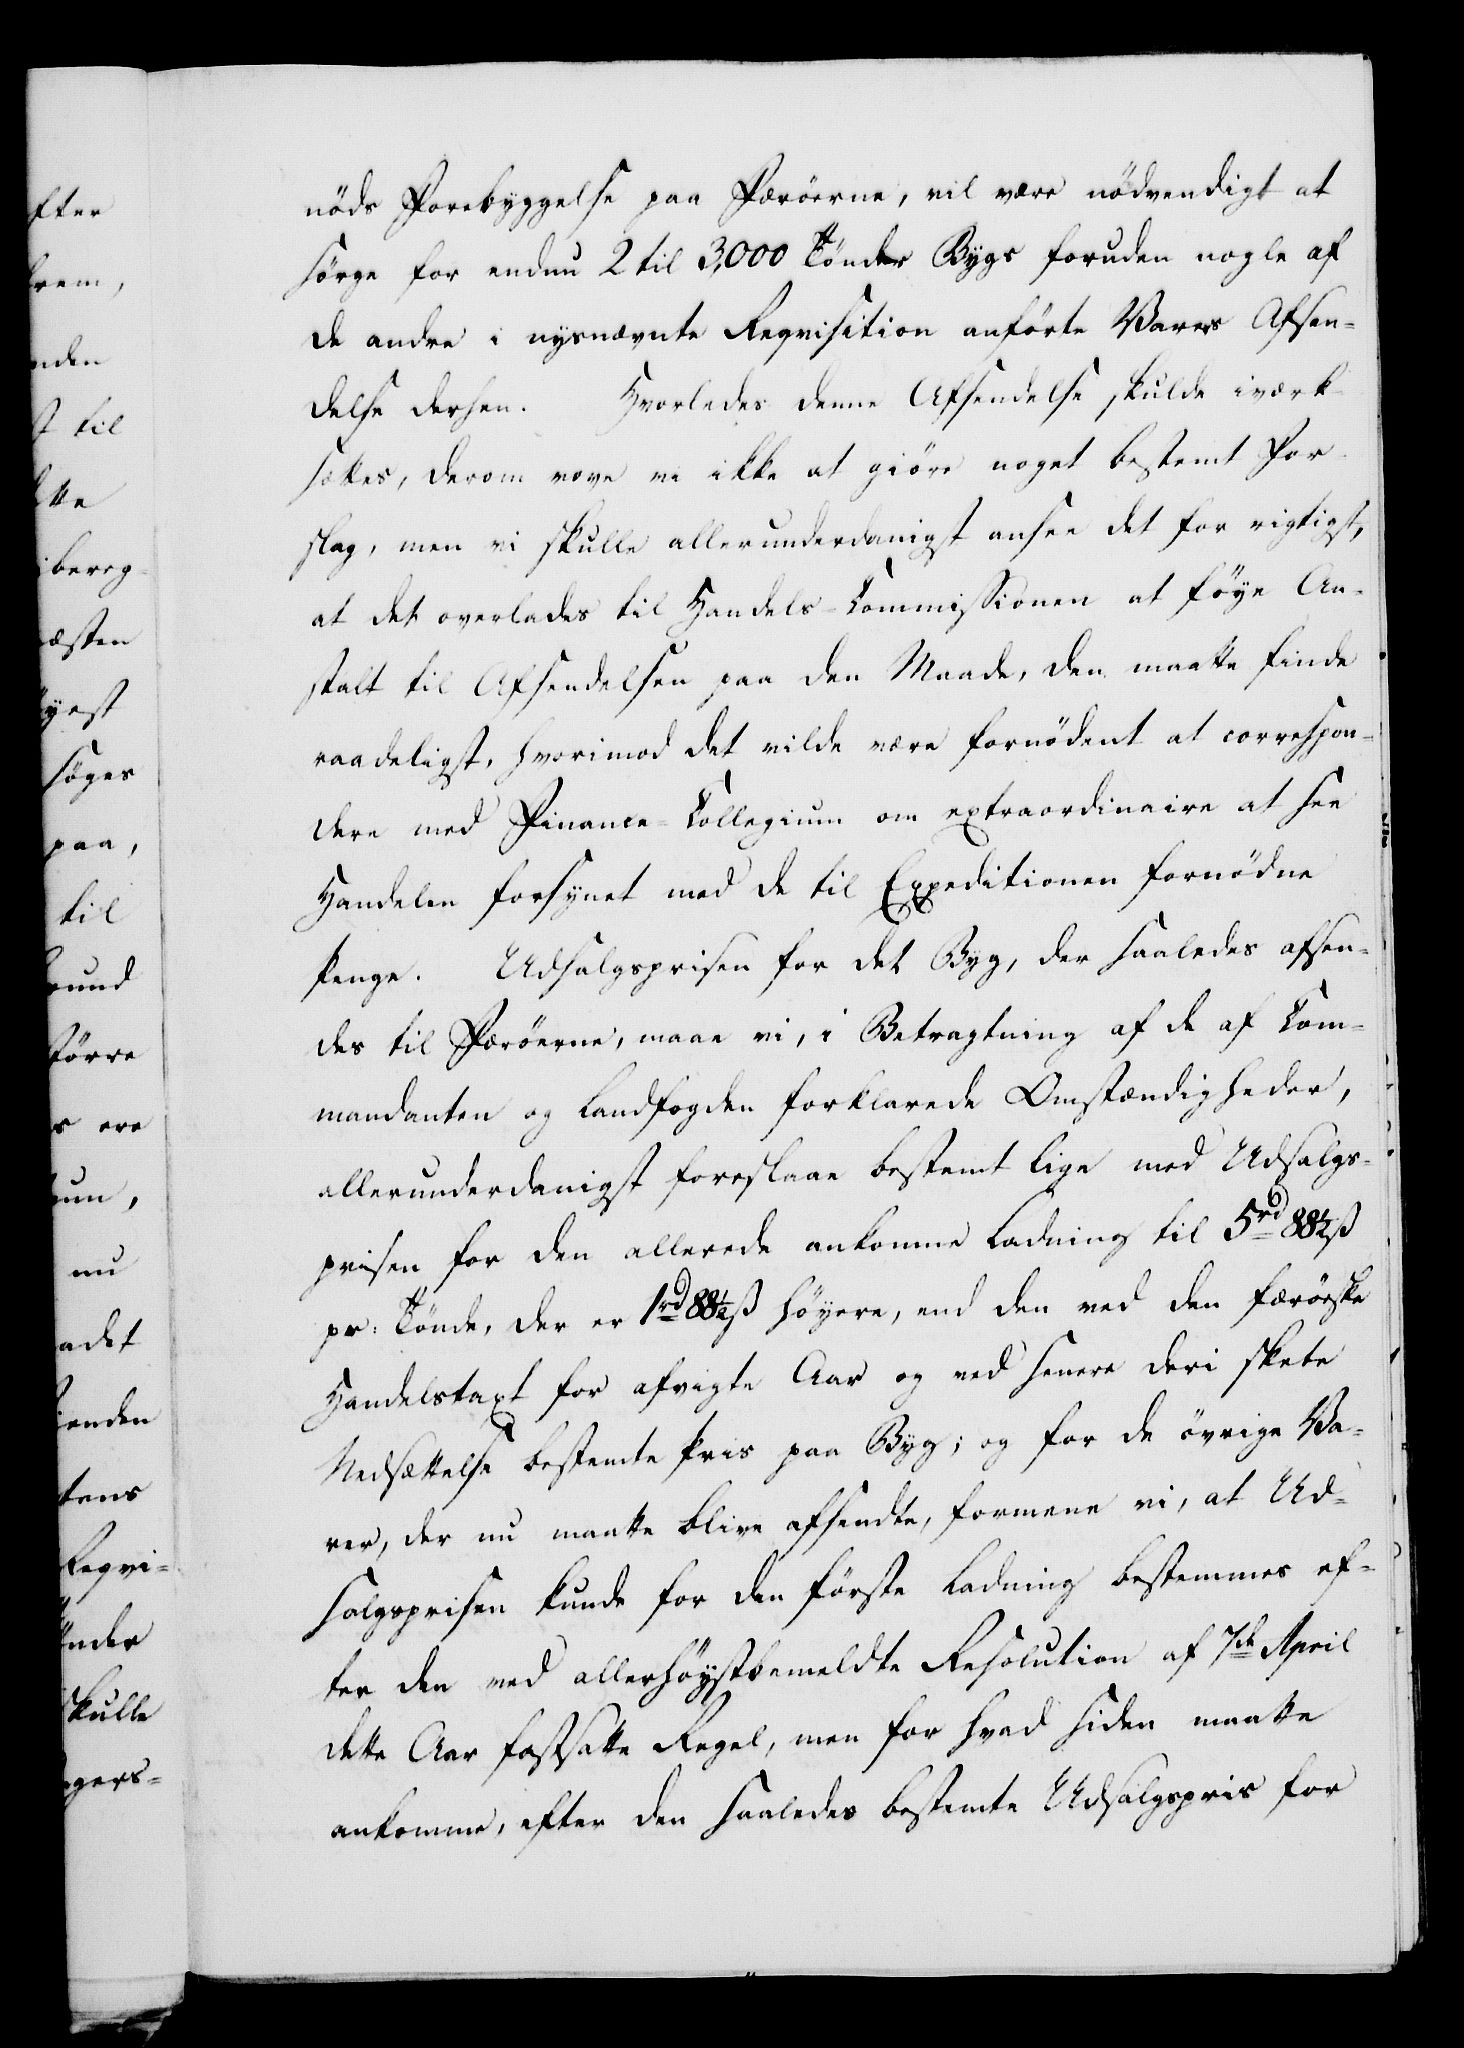 nöds Forebyggelse paa Færöerne, vil være nödvendigt at
sörge for endnu 2 til 3,000 Tönder Bygs foruden nogle af
de andre i nysnævnte Reqvisition anförte Varers Afsen-
delse derhen. Hvorledes denne Afsendelse skulde iværk-
sættes, derom vove vi ikke at giöre noget bestemt For-
slag, men vi skulle allerunderdanigst ansee det for rigtigst,
at det overlades til Handels-Commissionen at föye An-
stalt til Afsendelsen paa den Maade, den maatte finde
raadeligst, hvorimod det vilde være fornödent at correspon-
dere med Finance-Collegium om extraordinaire at see
Handelen forsynet med de til Expeditionen fornödne
Penge. Udsalgsprisen for det Byg, der saaledes afsen-
des til Færöerne, maae vi, i Betragtning af de af Com-
mandanten og Landfogden forklarede Omstændigheder,
allerunderdanigst foreslaae bestemt lige med Udsalgs-
prisen for den allerede ankomne Ladning til 5 rd 88½ ß
pr: Tönde, der er 1 rd 88½ ß höyere, end den ved den færöeske
Handelstaxt for afvigte Aar og ved senere deri skete
Nedsættelse bestemte Priis paa Byg; og for de övrige Va-
rer, der nu maatte blive afsendte, formene vi, at Ud-
salgsprisen kunde for den förste Ladning bestemmes ef-
ter den ved allerhöystbemeldte Resolution af 7de April
dette Aar fastsatte Regel, men for hvad siden maatte
ankomme, efter den saaledes bestemte Udsalgspris for
fter
nden
til
tte
bereg-
æsten
yest
söges
paa,
til
törre
ere
nu
adet
enden
tens
Reqvi-
skulle